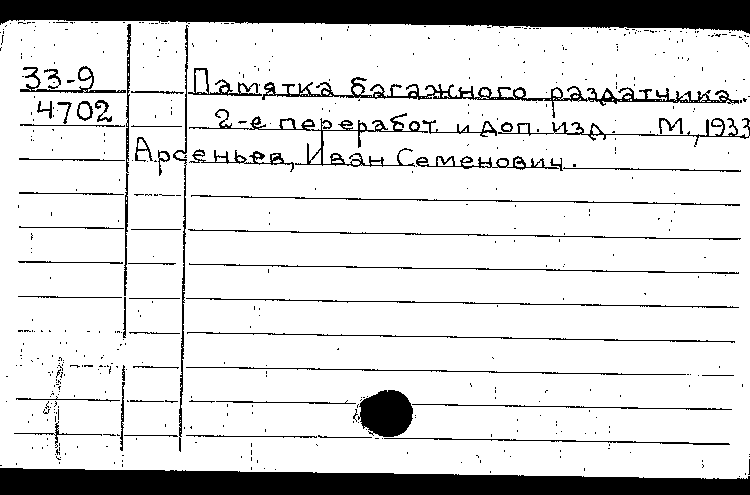 33-9 Памятка багажного раздатчика.
4702 2-е переработ. и доп. изд. М., 1933
Арсеньев, Иван Семенович.